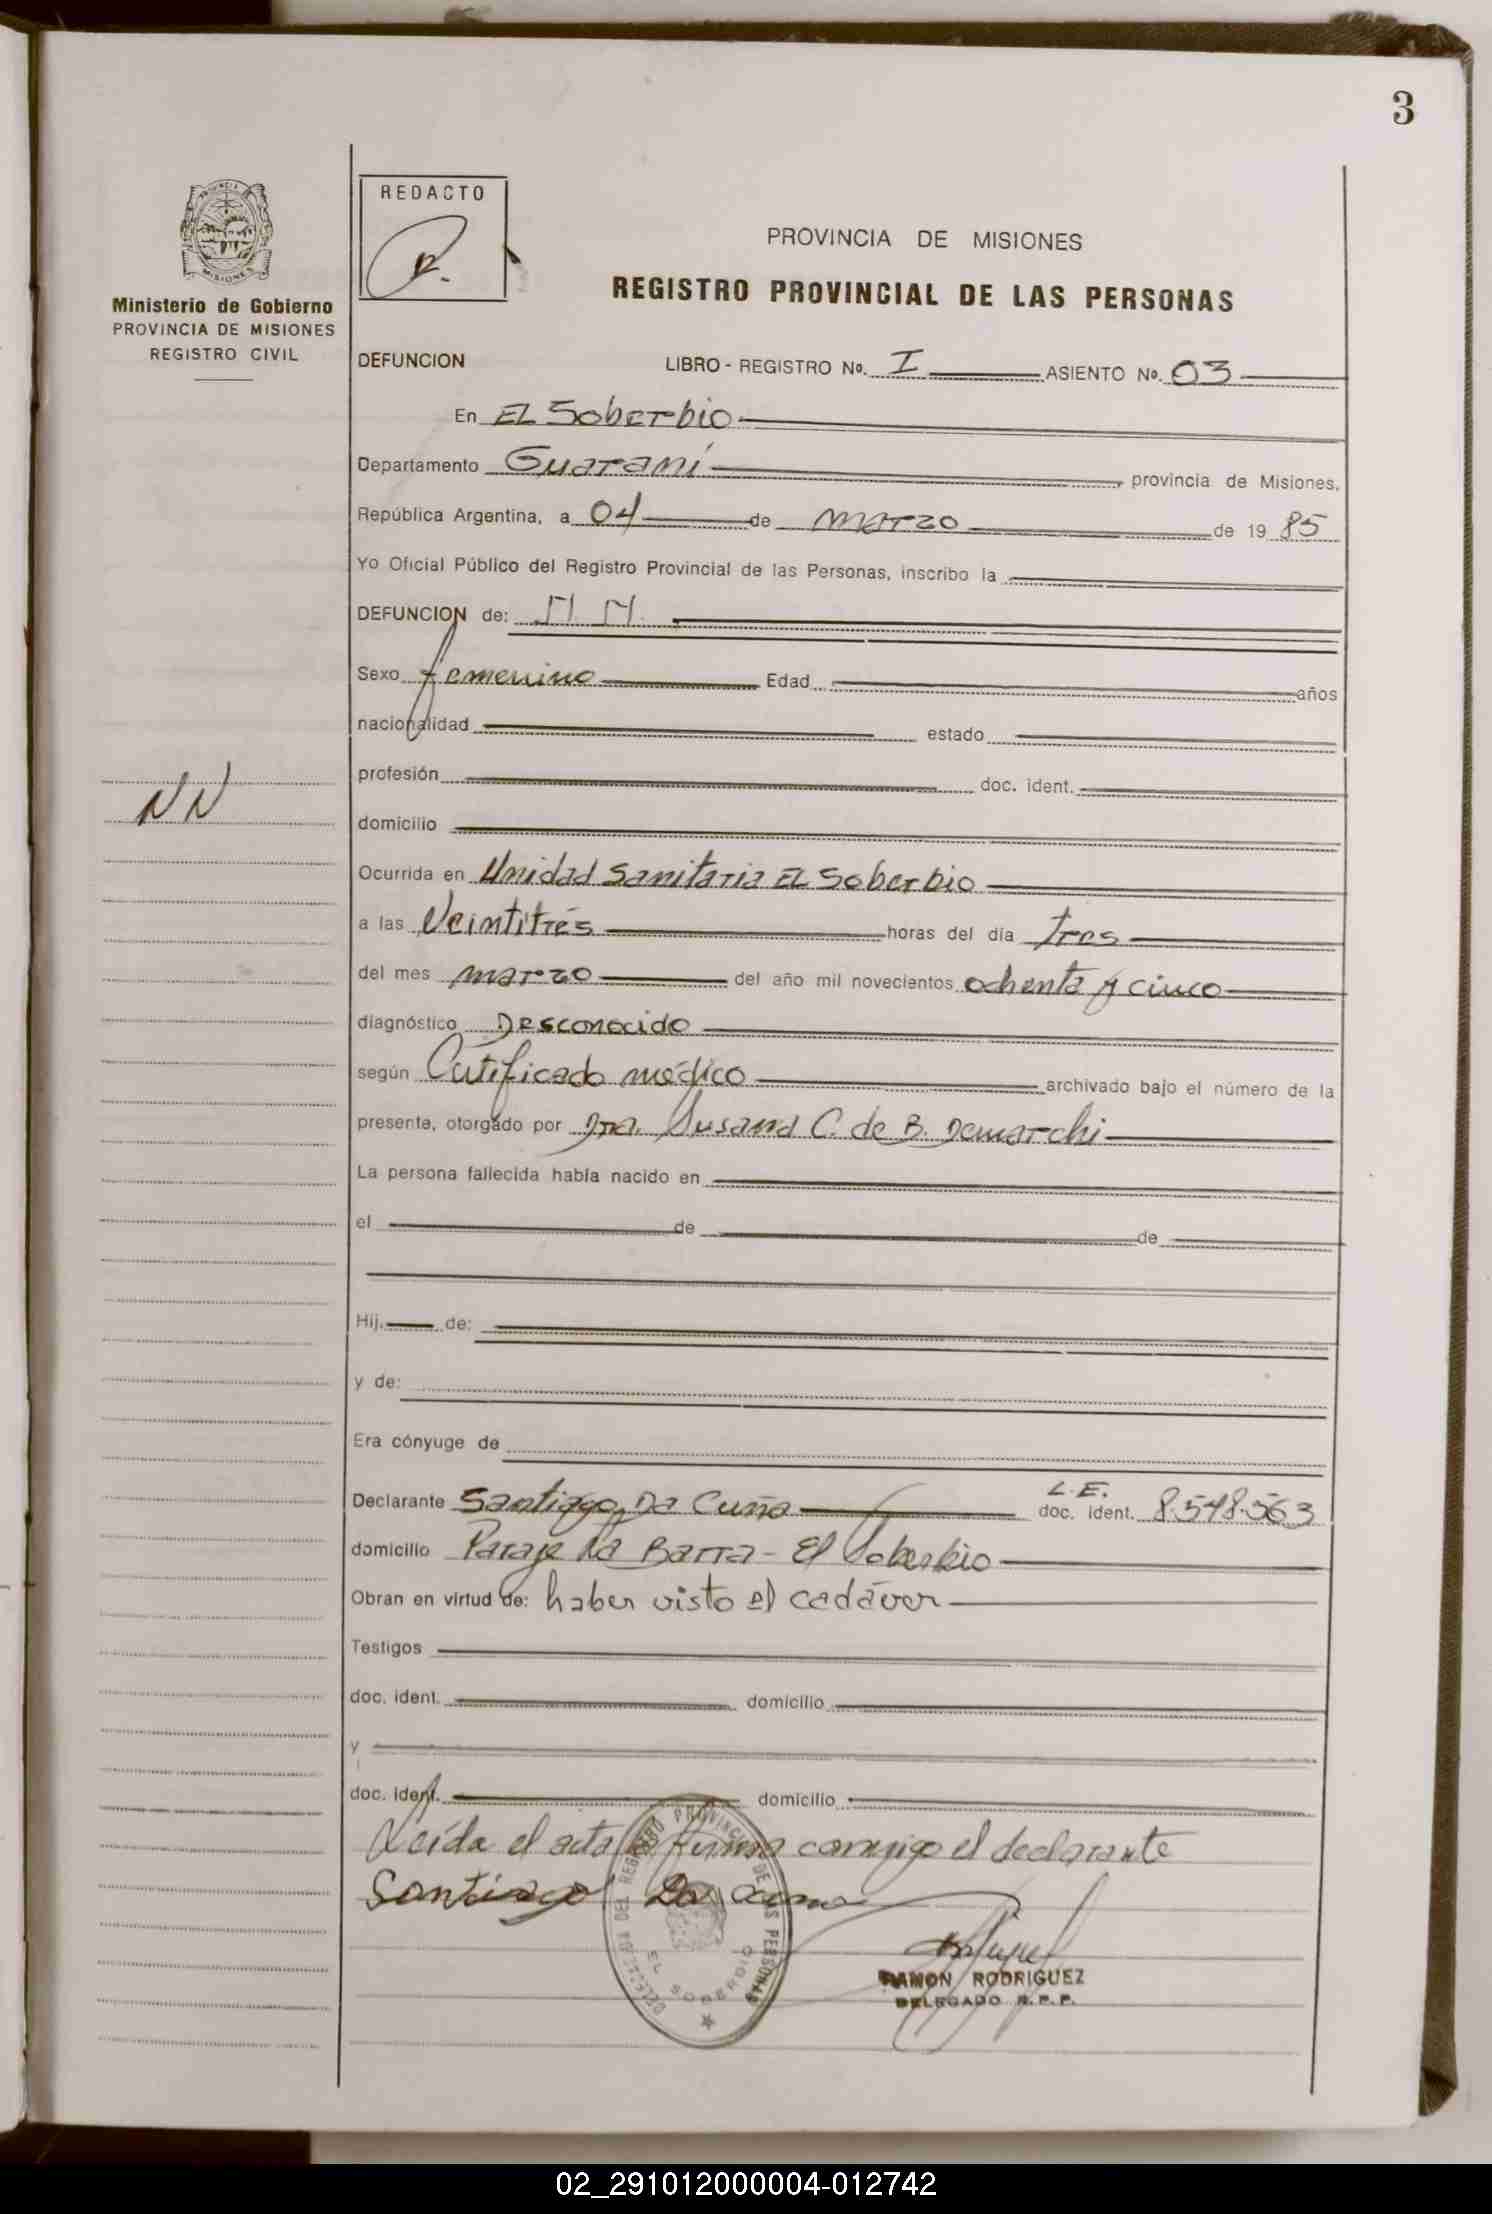 3
REDACTO
PROVINCIA DE MISIONES
REGISTRO PROVINCIAL DE LAS PERSONAS
MISIONES
Ministerio de Gobierno
PROVINCIA DE MISIONES
REGISTRO CIVIL
DEFUNCION LIBRO - REGISTRO No. I ASIENTO No. 03
En EL Soberbio
Departamento Guaraní, provincia de Misiones,
República Argentina, a 04 de marzo de 1985
Yo Oficial Público del Registro Provincial de las Personas, inscribo la
DEFUNCION de: N. N.
Sexo femenino Edad años
nacionalidad estado
profesión doc. ident.
NN
domicilio
Ocurrida en Unidad Sanitaria EL Soberbio
a las Veintitrés horas del día tres
del mes marzo del año mil novecientos ochenta y cinco
diagnóstico Desconocido
según Certificado médico archivado bajo el número de la
presente, otorgado por Dra. Susana C. de B. Demarchi
La persona fallecida había nacido en
el de de
Hij. de:
y de:
Era cónyuge de
Declarante Santiago Da Cuña L.E. doc. ident. 8.548.563
domicilio Paraje La Barra - El Soberbio
Obran en virtud de: haber visto el cadáver
Testigos
doc. ident. domicilio
y
doc. ident. domicilio
Leída el acta la firma conmigo el declarante
Santiago Da
DELEGACION DEL REGISTRO PROVINCIAL DE LAS PERSONAS
EL SOBERBIO
RAMON RODRIGUEZ
DELEGADO R.P.P.
02_291012000004-012742